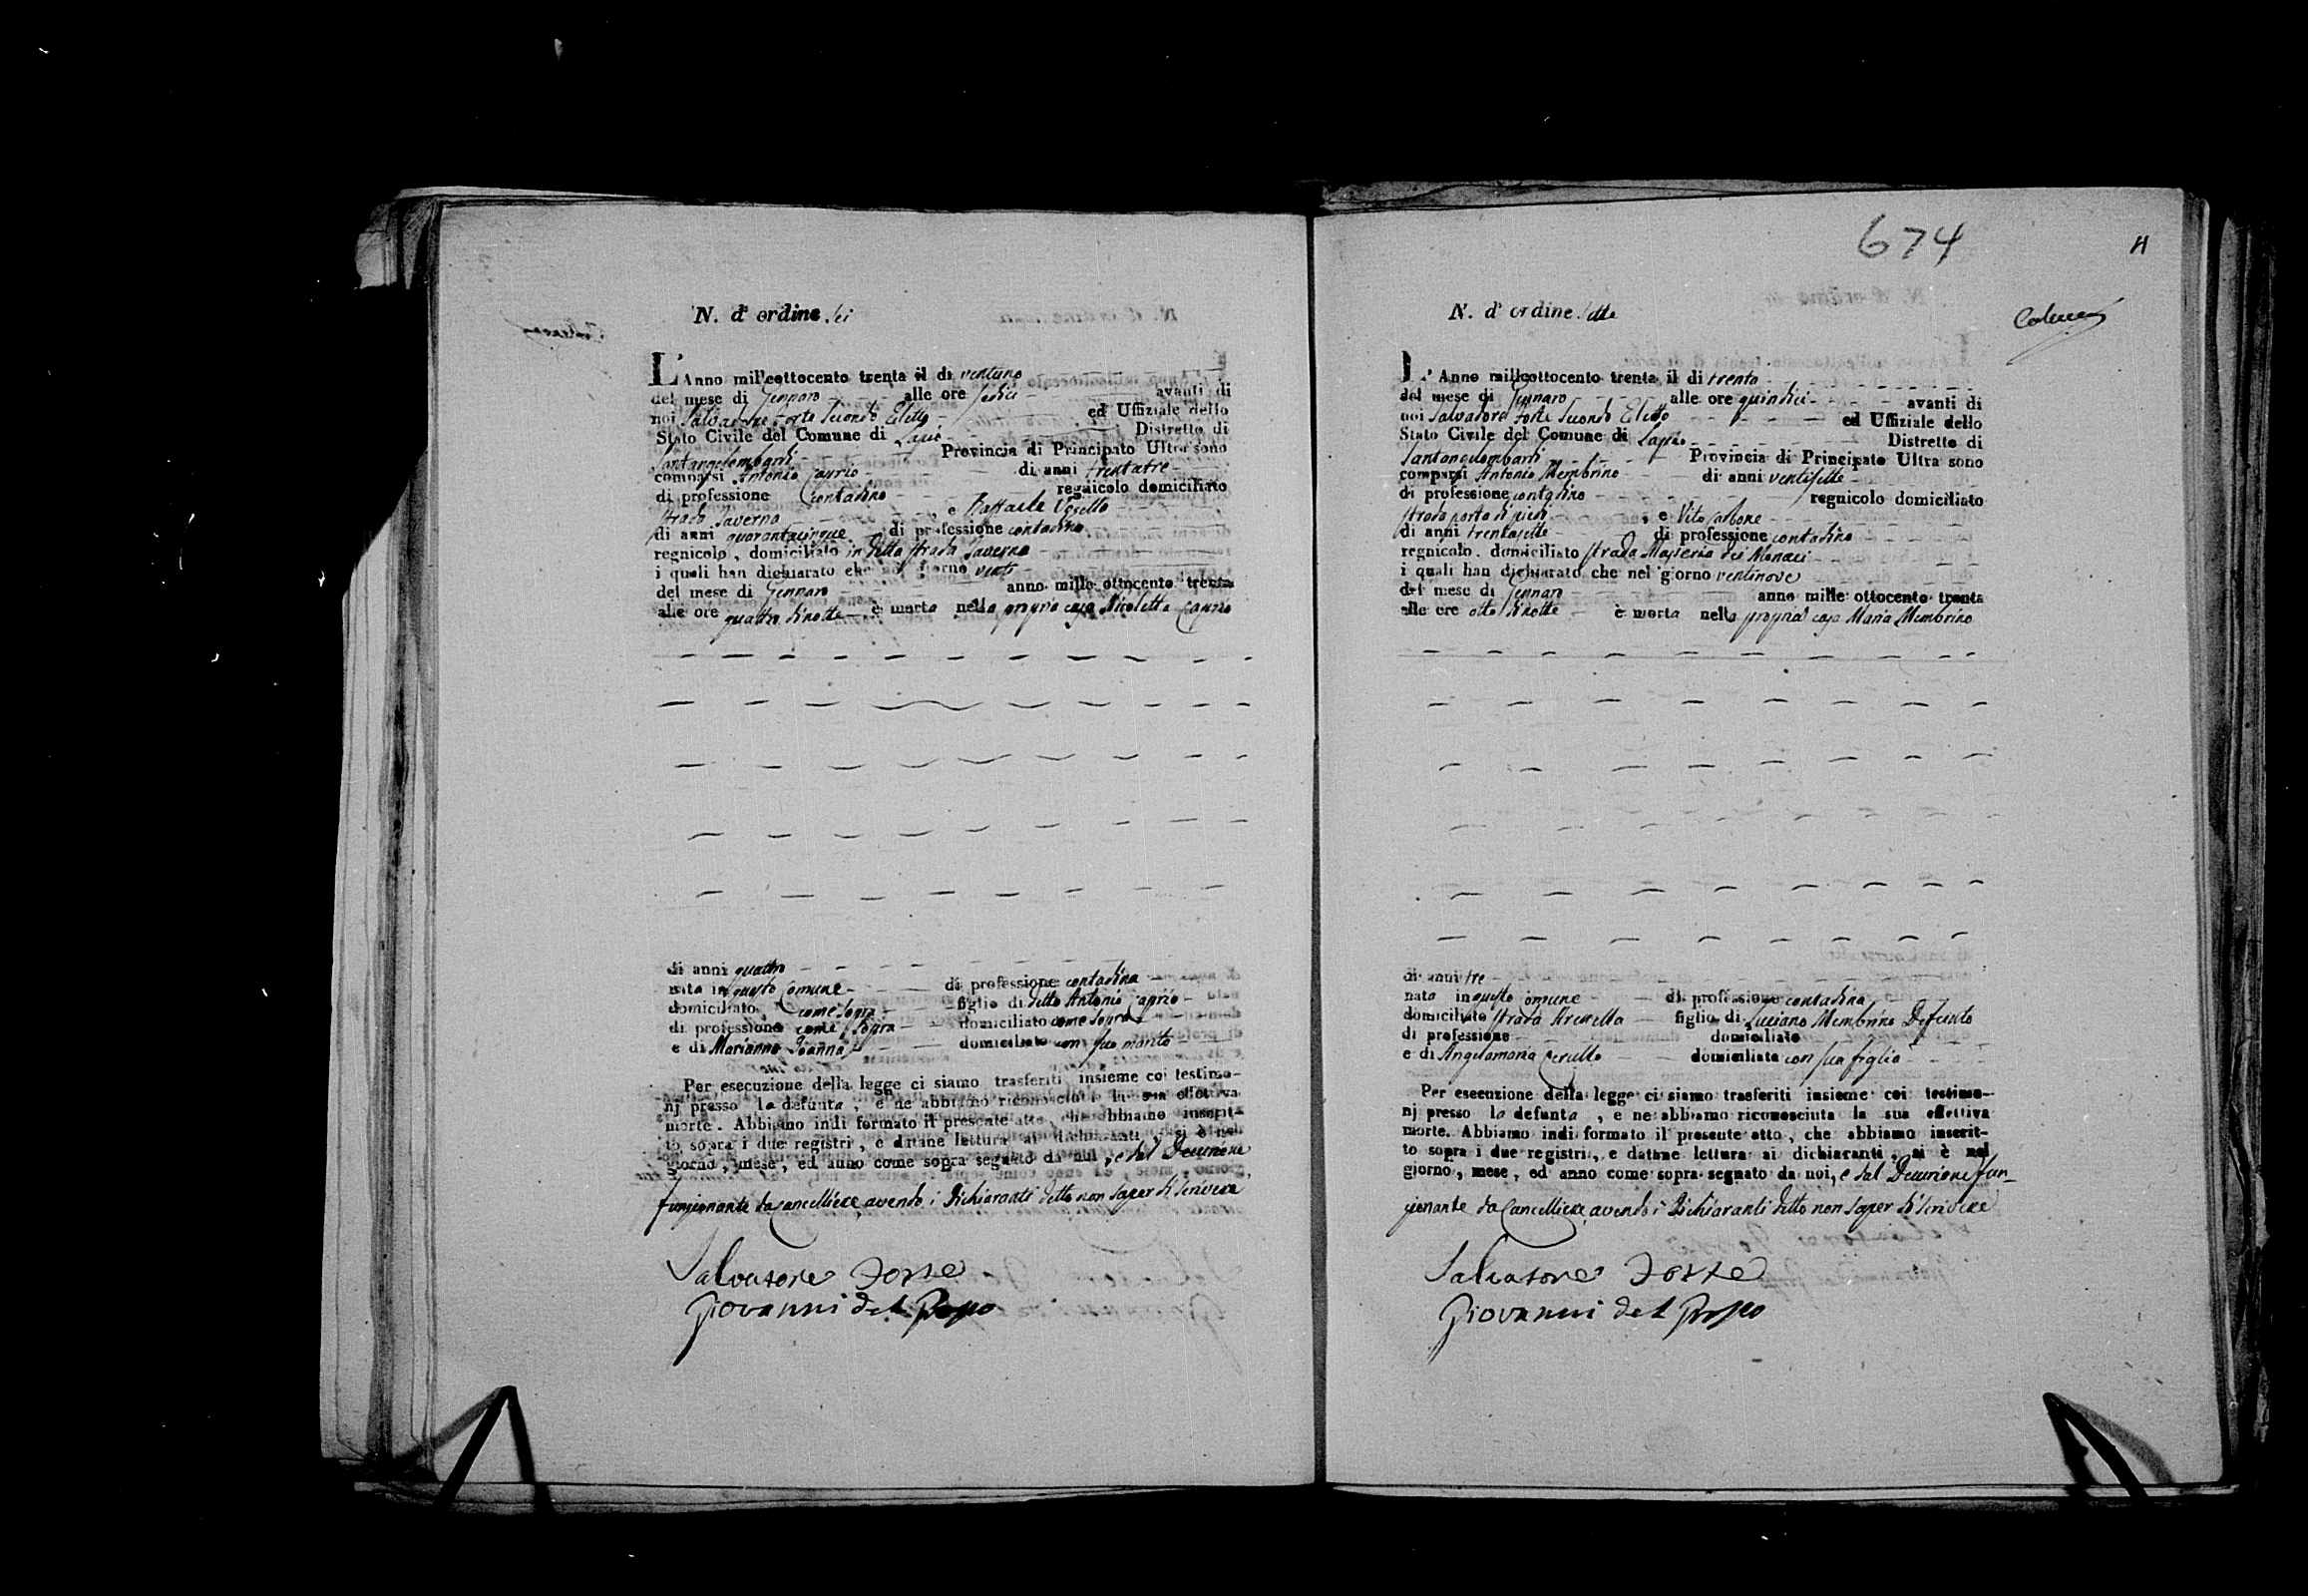 N. d'ordine Sei
L'Anno mill'eottocento trenta il di ventuno
del mese di Gennaro alle ore sedici avanti di
noi Salvadore Forte Secondo Eletto ed Uffiziale dello
Stato Civile del Comune di Lapio Distretto di
Santangelombardi Provincia di Principato Ultra sono
comparsi Antonio Caprio di anni trentatre
di professione Contadino regnicolo domiciliato
strada Taverna, e Raffaele
di anni quarantacinque di professione contadino
regnicolo, domiciliato in detta strada Taverna
i quali han dichiarato che nel giorno venti
del mese di Gennaro anno mille ottocento trenta
alle ore quattro di notte è morta nella propria casa Nicoletta Caprio
di anni quattro
nata in questo Comune di professione contadina
domiciliato come sopra figlio di detto Antonio Caprio
di professione come sopra domiciliato come sopra
e di Marianna Joanna domiciliato con suo marito
Per esecuzione della legge ci siamo trasferiti insieme coi testimo-
nj presso la defunta, e ne abbiamo riconosciuta la sua effettiva
morte. Abbiamo indi formato il presente atto, che abbiamo inscrit-
to sopra i due registri, e datane lettura ai dichiaranti, si è nel
giorno, mese, ed anno come sopra segnato da noi, e dal Decurione
funzionante da Cancelliere, avendo i dichiaranti detto non saper di scrivere
Salvatore Forte
Giovanni del
674
4
N. d'ordine Sette
L'Anno millcottocento trenta il di trenta
del mese di Gennaro alle ore quindici avanti di
noi Salvadore Forte Secondo Eletto ed Uffiziale dello
Stato Civile del Comune di Lapio Distretto di
Santangelombardi Provincia di Principato Ultra sono
comparsi Antonio Membrino di anni ventisette
di professione contadino regnicolo domiciliato
strada porta di piedi, e Vito Carbone
di anni trentasette di professione contadino
regnicolo. domiciliato strada Masseria dei Monaci
i quali han dichiarato che nel giorno ventinove
del mese di Gennaro anno mille ottocento trenta
alle ore otto di notte è morta nella propria casa Maria Membrino
di anni tre
nata in questo Comune di professione contadina
domiciliato strada figlio di Luciano Membrino Defunto
di professione domiciliato
e di Angelamaria domiciliata con sua figlia
Per esecuzione della legge ci siamo trasferiti insieme coi testimo-
nj presso la defunta, e ne abbiamo riconosciuta la sua effettiva
morte. Abbiamo indi formato il presente atto, che abbiamo inscrit-
to sopra i due registri, e datane lettura ai dichiaranti, si è nel
giorno, mese, ed anno come sopra segnato da noi, e dal Decurione fun-
zionante da Cancelliere, avendo i dichiaranti detto non saper di scrivere
Salvatore Forte
Giovanni del